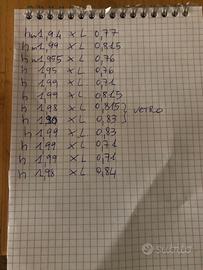 h 1,94 x L 0,77
h 1,99 x L 0,815
h 1,955 x L 0,76
h 1,95 x L 0,76
h 1,99 x L 0,71
h 1,99 x L 0,815
h 1,98 x L 0,815
h 1,90 x L 0,83 VETRO
h 1,99 x L 0,83
h 1,99 x L 0,71
h 1,99 x L 0,71
h 1,98 x L 0,84
subito